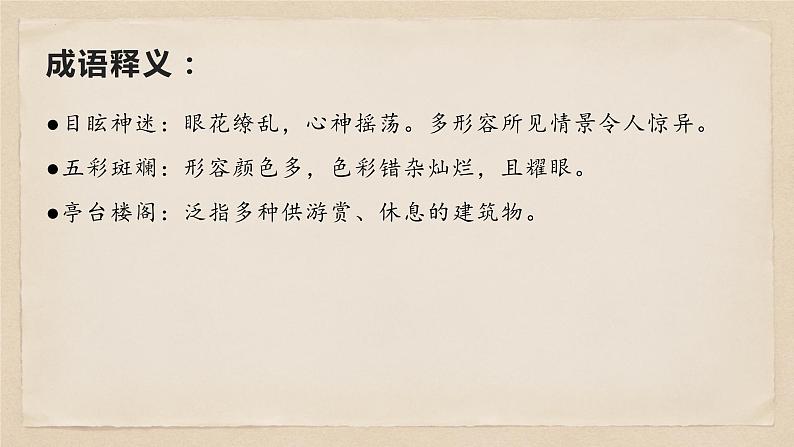 成语释义：
●目眩神迷：眼花缭乱，心神摇荡。多形容所见情景令人惊异。
●五彩斑斓：形容颜色多，色彩错杂灿烂，且耀眼。
●亭台楼阁：泛指多种供游赏、休息的建筑物。